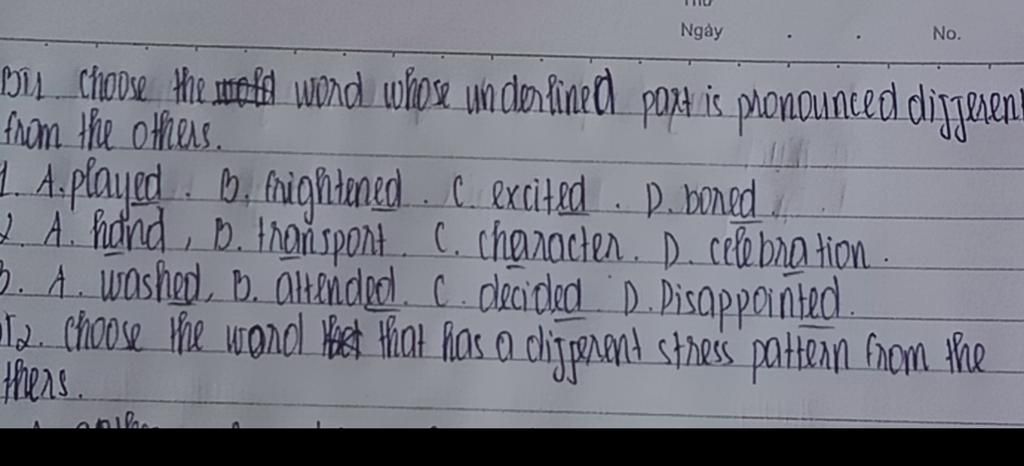 Ngày . . No.
BT1 choose the word whose underlined part is pronounced different
from the others.
1. A. played. B. frightened. C. excited. D. bored
2. A. hand, B. transport. C. character. D. celebration.
3. A. washed, B. attended. C. decided D. Disappointed.
T2. Choose the word that has a different stress pattern from the
thers.